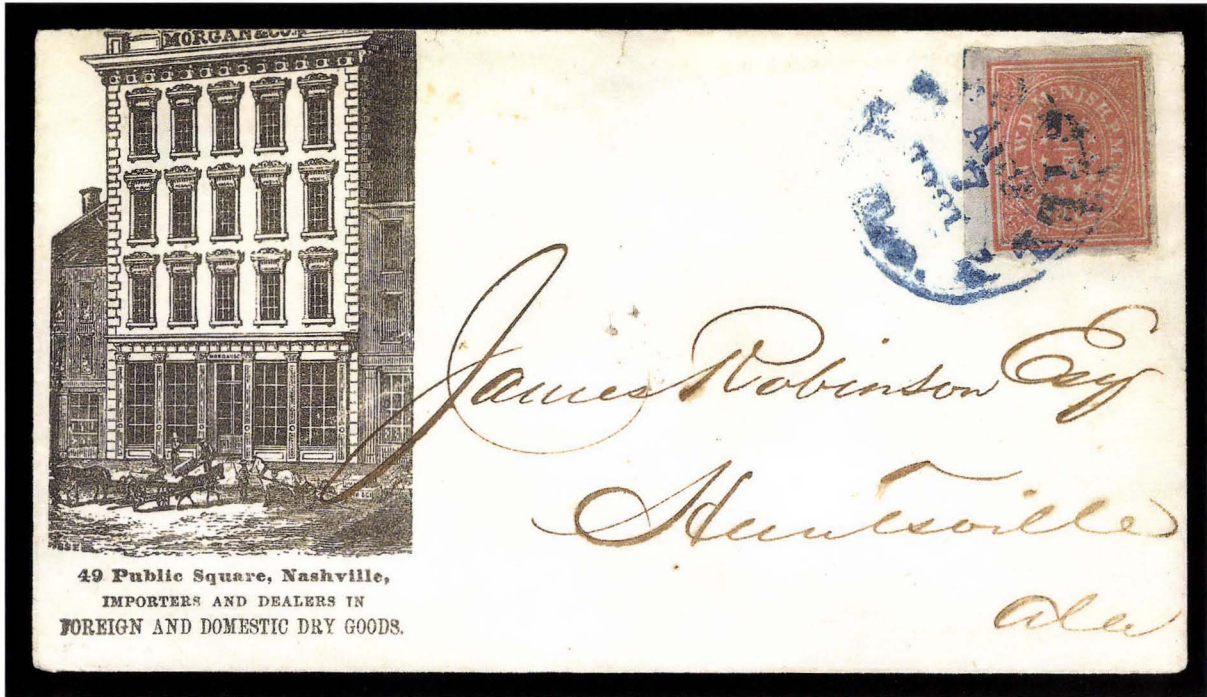 MORGAN & CO.
49 Public Square, Nashville,
IMPORTERS AND DEALERS IN
FOREIGN AND DOMESTIC DRY GOODS.
W.D. McNISH P.M.
James Robinson Esq
Huntsville
Ala